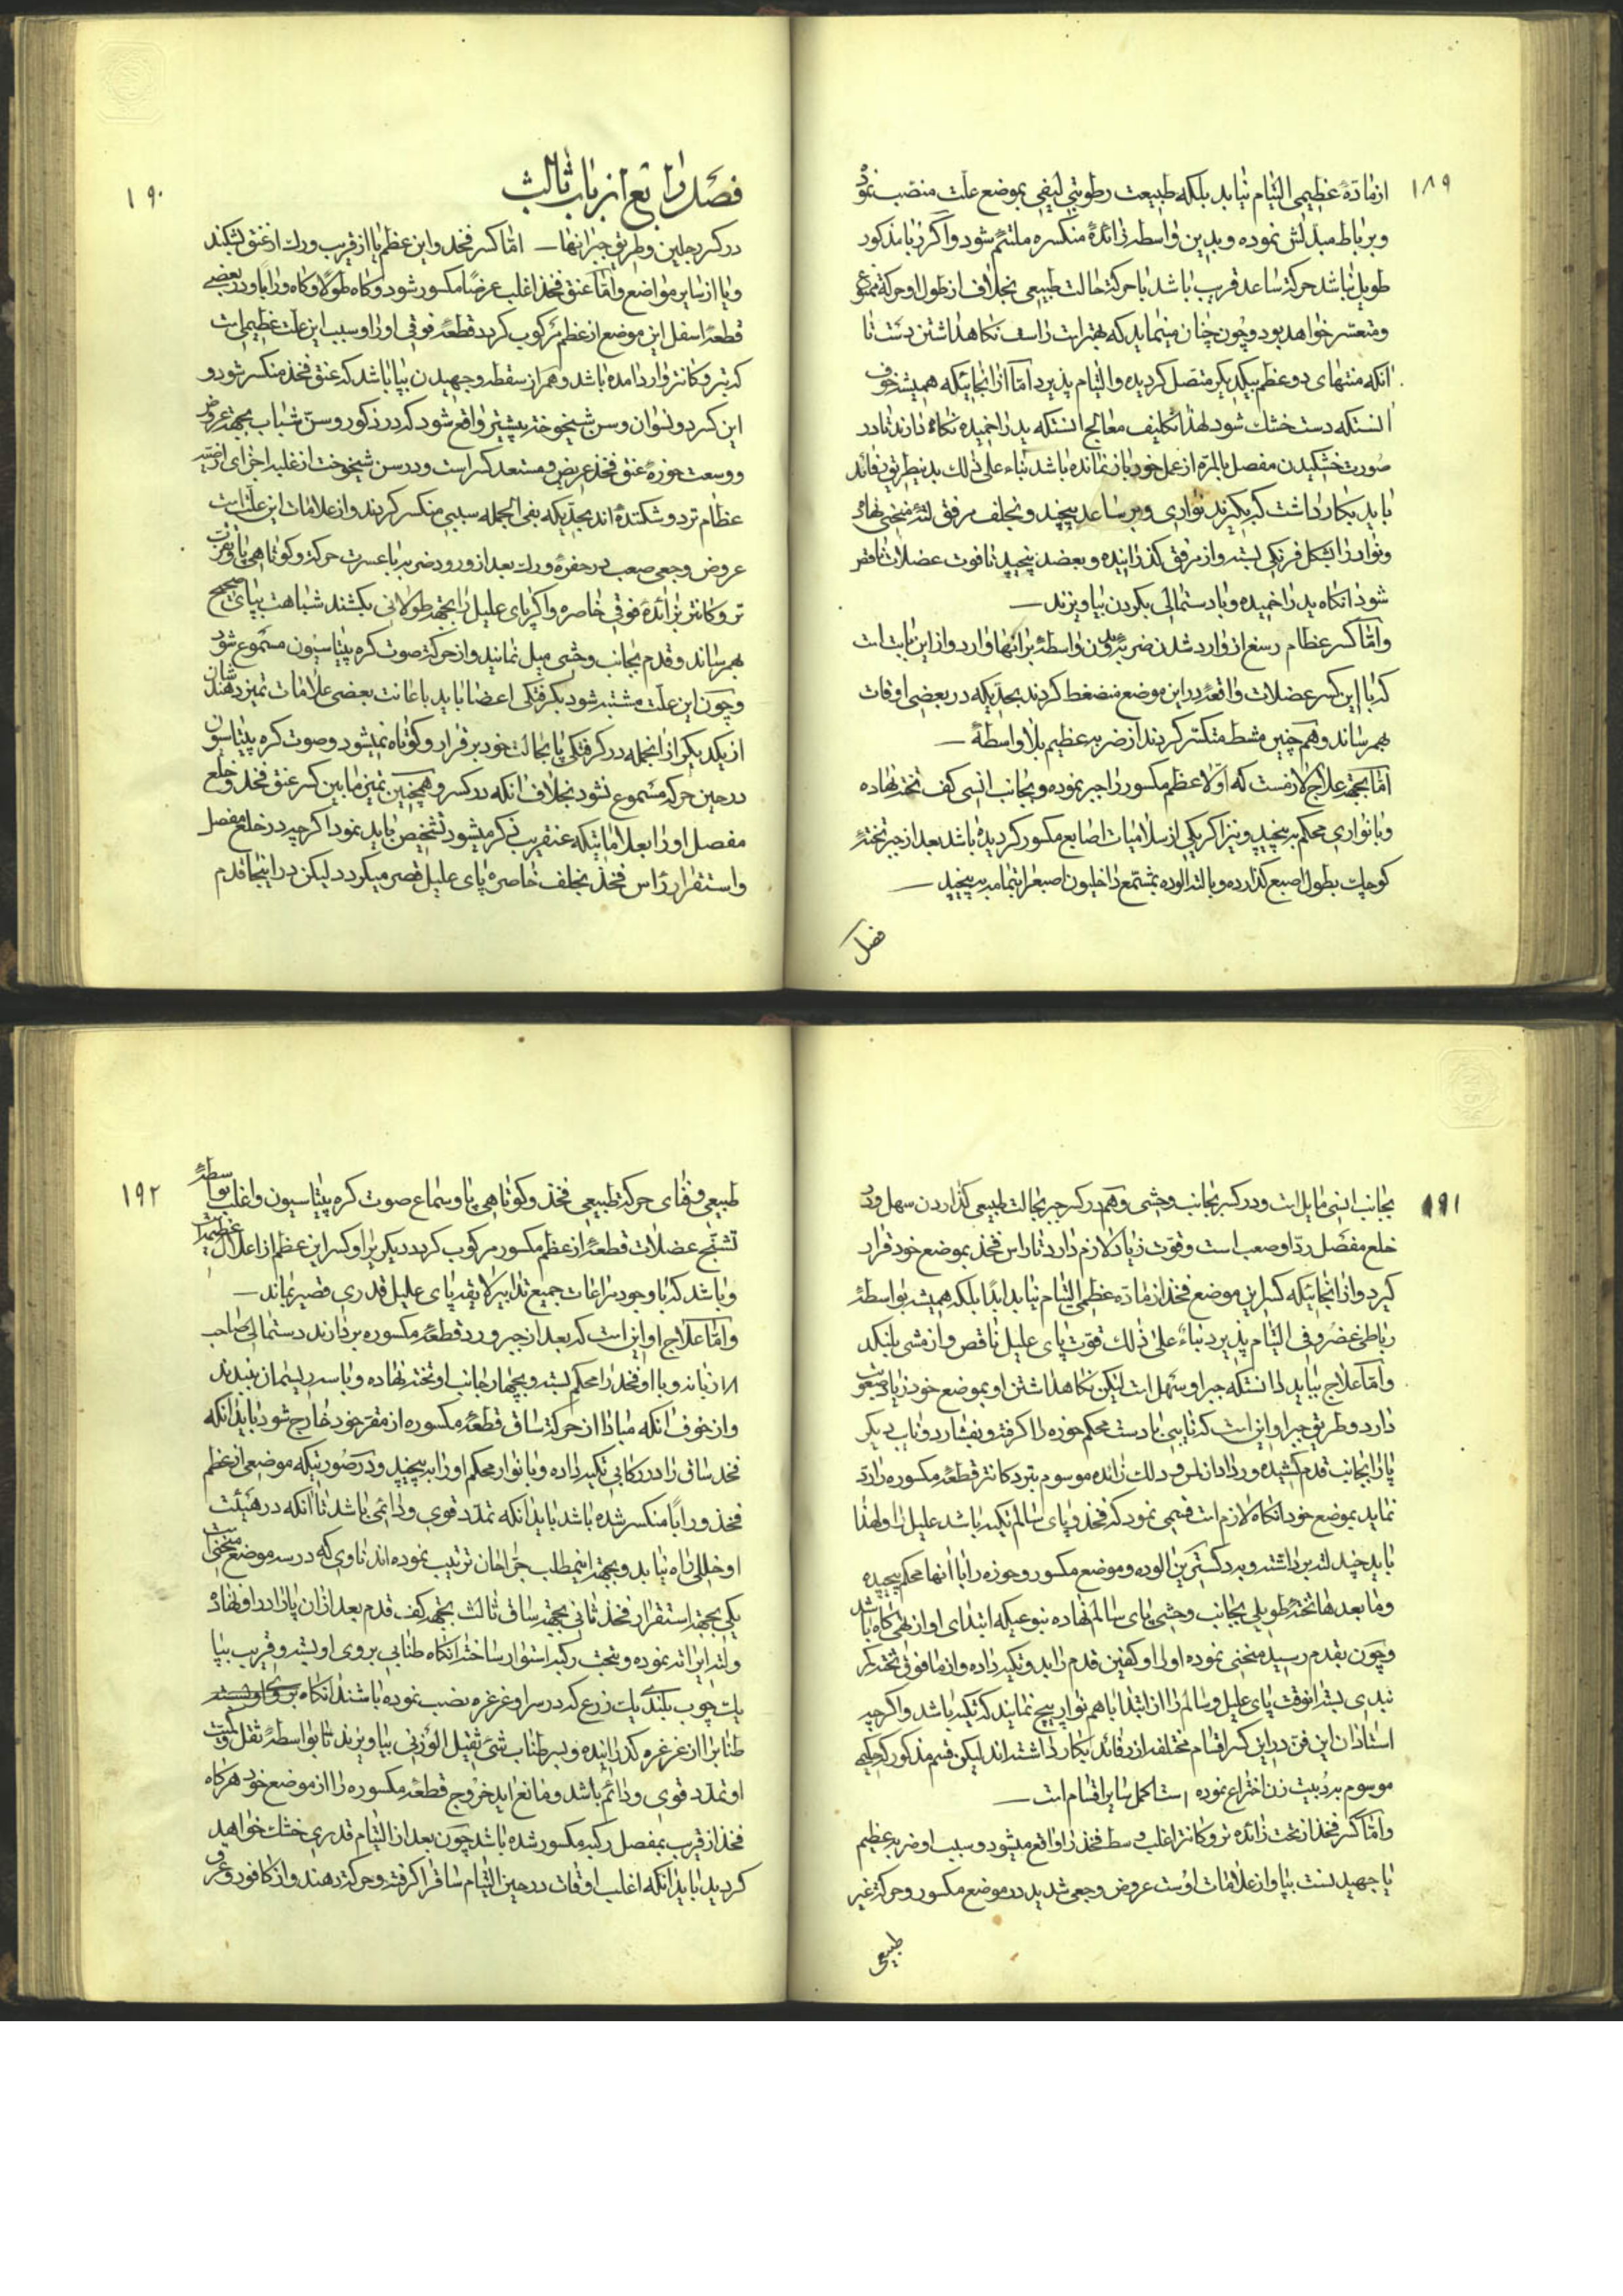 ۱۸۹
از مادهٔ عظیمی التیام نیابد بلکه طبیعت رطوبتی لیفی بموضع علت منصب نموده
و برباط مبدلش نموده و بدین واسطه زائدهٔ منکسره ملتئم شود و اگر زیاد مذکور
طویل نباشد حرکة ساعد قریب باشد با حرکة حالت طبیعی بخلاف از طول او حرکة ممنوع
و متعسر خواهد بود و چون چنان مینماید که بهتر است راست نکاهداشتن دست تا
آنکه منتهای دو عظم بیکدیکر متصل کردیده و التیام پذیرد اما از انجائیکه همیشه خوف
انستکه دست خشک شود لهذا تکلیف معالج انستکه ید را خمیده نکاه دارند تا در
صورت خشکیدن مفصل بالمره از عمل خود باز نمانده باشد بناء علی ذلک بدینطریق رفائد
باید بکار داشت که بکیرند نواری و بر ساعد پیچند و بخلف مرفق لتهٔ منحنی نهاده
و نوار را بشکل فرنکی بسته و از مرفق کذرانیده و بعضد پیچید تا قوت عضلات ناقص
شود انکاه ید را خمیده و با دستمالی بکردن بیاویزند
و اما کسر عظام رسغ از وارد شدن ضربهٔ بدون واسطهٔ بر انها وارد و از این بابت است
که با این کسر عضلات واقعهٔ در این موضع منضغط کردند بحدیکه در بعضی اوقات
بهم رساند و همچنین مشط متکسر کردند از ضربه عظیم بلا واسطهٔ
اما بجهة علاج لازمست که اولا عظم مکسور را جبر نموده و بجانب انسی کف تخته نهاده
و با نواری محکم بپیچید و نیز اکر یکی از سلامیات اصابع مکسور کردیده باشد بعد از جبر تختهٔ
کوچک بطول اصبع کذارده و با لته الوده بمشمع داخلیون اصبع را بتمامه بپیچید
فصل
۱۹۰
فصل رابع از باب ثالث
در کسر رجلین و طریق جبر انها اما کسر فخذ و این عظم یا از قریب ورک از عنق بشکند
و یا از سایر مواضع و اما عنق فخذ اغلب عرضاً مکسور شود و کاه طولا و کاه وراباً و در بعضی
قطعهٔ اسفل این موضع از عظم مرکوب کردد قطعهٔ فوقی او را و سبب این علت عظیمی است
که بتروکانتر وارد امده باشد و هم از سقطه و جهیدن بپا باشد که عنق فخذ منکسر شود و
این کسر در نسوان و سن شیخوخة بیشتر واقع شود که در ذکور و سن شباب بجهة عروض
و وسعت حوزه عنق فخذ عریض و مستعد کسر است و در سن شیخوخت از غلبه اجزای ارضیه
عظام ترد و شکننده اند بحدیکه بفی الجمله سببی منکسر کردند و از علامات این علت است
عروض وجعی صعب در حفرهٔ ورک بعد از ورود ضربه با عسرت حرکة و کوتاهی پا و تقرب
تروکانتر بزائدهٔ فوقی خاصره و اکر پای علیل را بجهة طولانی بکشند شباهت بپای صحیح
بهم رساند و قدم بجانب وحشی میل نماید و از حرکة صوت کره پیتاسیون مسموع شود
و چون این علت مشتبه شود بکرفتکی اعضا باید باعانت بعضی علامات تمیز دهند شان
از یکدیکر از انجمله در کرفتکی پا بحالت خود برقرار و کوتاه نمیشود و صوت کره پیتاسیون
در حین حرکة مسموع نشود بخلاف انکه در کسر و همچنین تمیز ما بین کسر عنق فخذ و خلع
مفصل او را بعلاماتیکه عنقریب ذکر میشود تشخیص باید نمود اکرچه در خلع مفصل
و استقرار راس فخذ بخلف خاصره پای علیل قصر میکردد لیکن در اینجا قدم
۱۹۱
بجانب انسی مایل است و در کسر بجانب وحشی و هم در کسر جبر بحالت طبیعی کذاردن سهل و در
خلع مفصل رد او صعب است و قوت زیاد لازم دارد تا راس فخذ بموضع خود قرار
کیرد و از انجائیکه کسر این موضع فخذ از ماده عظمی التیام نیابد ابداً بلکه همیشه بواسطهٔ
رباطی غضروفی التیام پذیرد بناء علی ذلک قوت پای علیل ناقص و از مشی بلنکد
و اما علاج بباید دانستکه جبر او سهل است لیکن نکاهداشتن او بموضع خود زیاد صعوبت
دارد و طریق جبر او این است که نایبی با دست محکم حوزه را کرفته و بفشارد و نایب دیکر
پا را بجانب قدم کشیده و رداد از لمس و دلک زائده موسوم بتروکانتر قطعهٔ مکسوره را رد
نماید بموضع خود انکاه لازم است قیمی نمود که فخذ و پای سالم تکیه باشد علیل را و لهذا
باید چند لته برداشته و بردکستین الوده و موضع مکسور و حوزه را با انها محکم پیچیده
و ما بعدها تختهٔ طویلی بجانب وحشی پای سالم نهاده بنوعیکه ابتدای او از تهی کاه باشد
و چون بقدم رسید منحنی نموده او را و کفین قدم را بدو تکیه داده و از ما فوق تخته کمر
بندی بسته انوقت پای علیل و سالم را از ابتدا با هم نوار پیچ نمایند که تکیه باشد و اکرچه
استادان این فن در این کسر اقسام مختلفه از رفائد بکار داشته اند لیکن قسم مذکور که حکیمی
موسوم بردبیت زن اختراع نموده است اکمل سایر اقسام است
و اما کسر فخذ از تحت زائده تروکانتر اغلب وسط فخذ را واقع میشود و سبب او ضربه عظیم
یا جهید نست بپا و از علامات اوست عروض وجعی شدید در موضع مکسور و حرکة غیر
طبیعی
۱۹۲
طبیعی و فنای حرکة طبیعی فخذ و کوتاهی پا و سماع صوت کره پیتاسیون و اغلب بواسطهٔ
تشنج عضلات قطعهٔ از عظم مکسور مرکوب کردد دیکری را و کسر این عظم از اعلال عظیمه است
و باشد که با وجود مراعات جمیع تدابیر لایقه پای علیل قدری قصیر بماند
و اما علاج او این است که بعد از جبر و رد قطعهٔ مکسوره بردارند دستمالی
و با او فخذ را محکم بسته و بچهار جانب او تخته نهاده و با سه ریسمان ببندند
و از خوف انکه مبادا از حرکة ساق قطعهٔ مکسوره از مقر خود خارج شود باید انکه
فخذ ساق را در رکابی تکیه داده و با نوار محکم او را بپیچید و در صورتیکه موضعی از عظم
فخذ وراباً منکسر شده باشد باید انکه تمدد قوی و دائمی باشد تا انکه در هیئت
او خللی راه نیابد و بجهة اینمطلب جراحان ترتیب نموده اند ناوی که در سه موضع منحنی است
یکی بجهة استقرار فخذ ثانی بجهة ساق ثالث بجهة کف قدم بعد از ان پا را در او نهاده
و لته را تر نموده و بتحت رکبه استوار ساخته انکاه طنابی بروی او بسته و قریب بپا
یک چوب بلندی یک ذرع که در سر او غرغره نصب نموده باشند انکاه
طناب را از غرغره کذرانیده و بسر طناب شئ ثقیل الوزنی بیاویزند تا بواسطهٔ ثقل و کمیت
او تمدد قوی و دائم باشد و مانع اید خروج قطعهٔ مکسوره را از موضع خود هر کاه
فخذ از قریب بمفصل رکبه مکسور شده باشد چون بعد از التیام قدری خشک خواهد
کردید باید انکه اغلب اوقات در حین التیام ساق را کرفته و حرکة دهند و از کافور و عرق